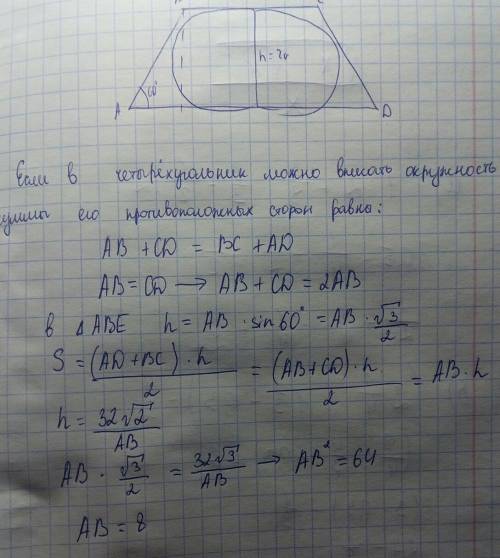 h=2r
60°
A
D
Если в четырёхугольник можно вписать окружность
суммы его противоположных сторон равны:
AB + CD = BC + AD
AB = CD → AB + CD = 2AB
в △ABE h = AB · sin 60° = AB · √3/2
S = (AD + BC) · h / 2 = (AB + CD) · h / 2 = AB · h
h = 32√2 / AB
AB · √3/2 = 32√3 / AB → AB² = 64
AB = 8